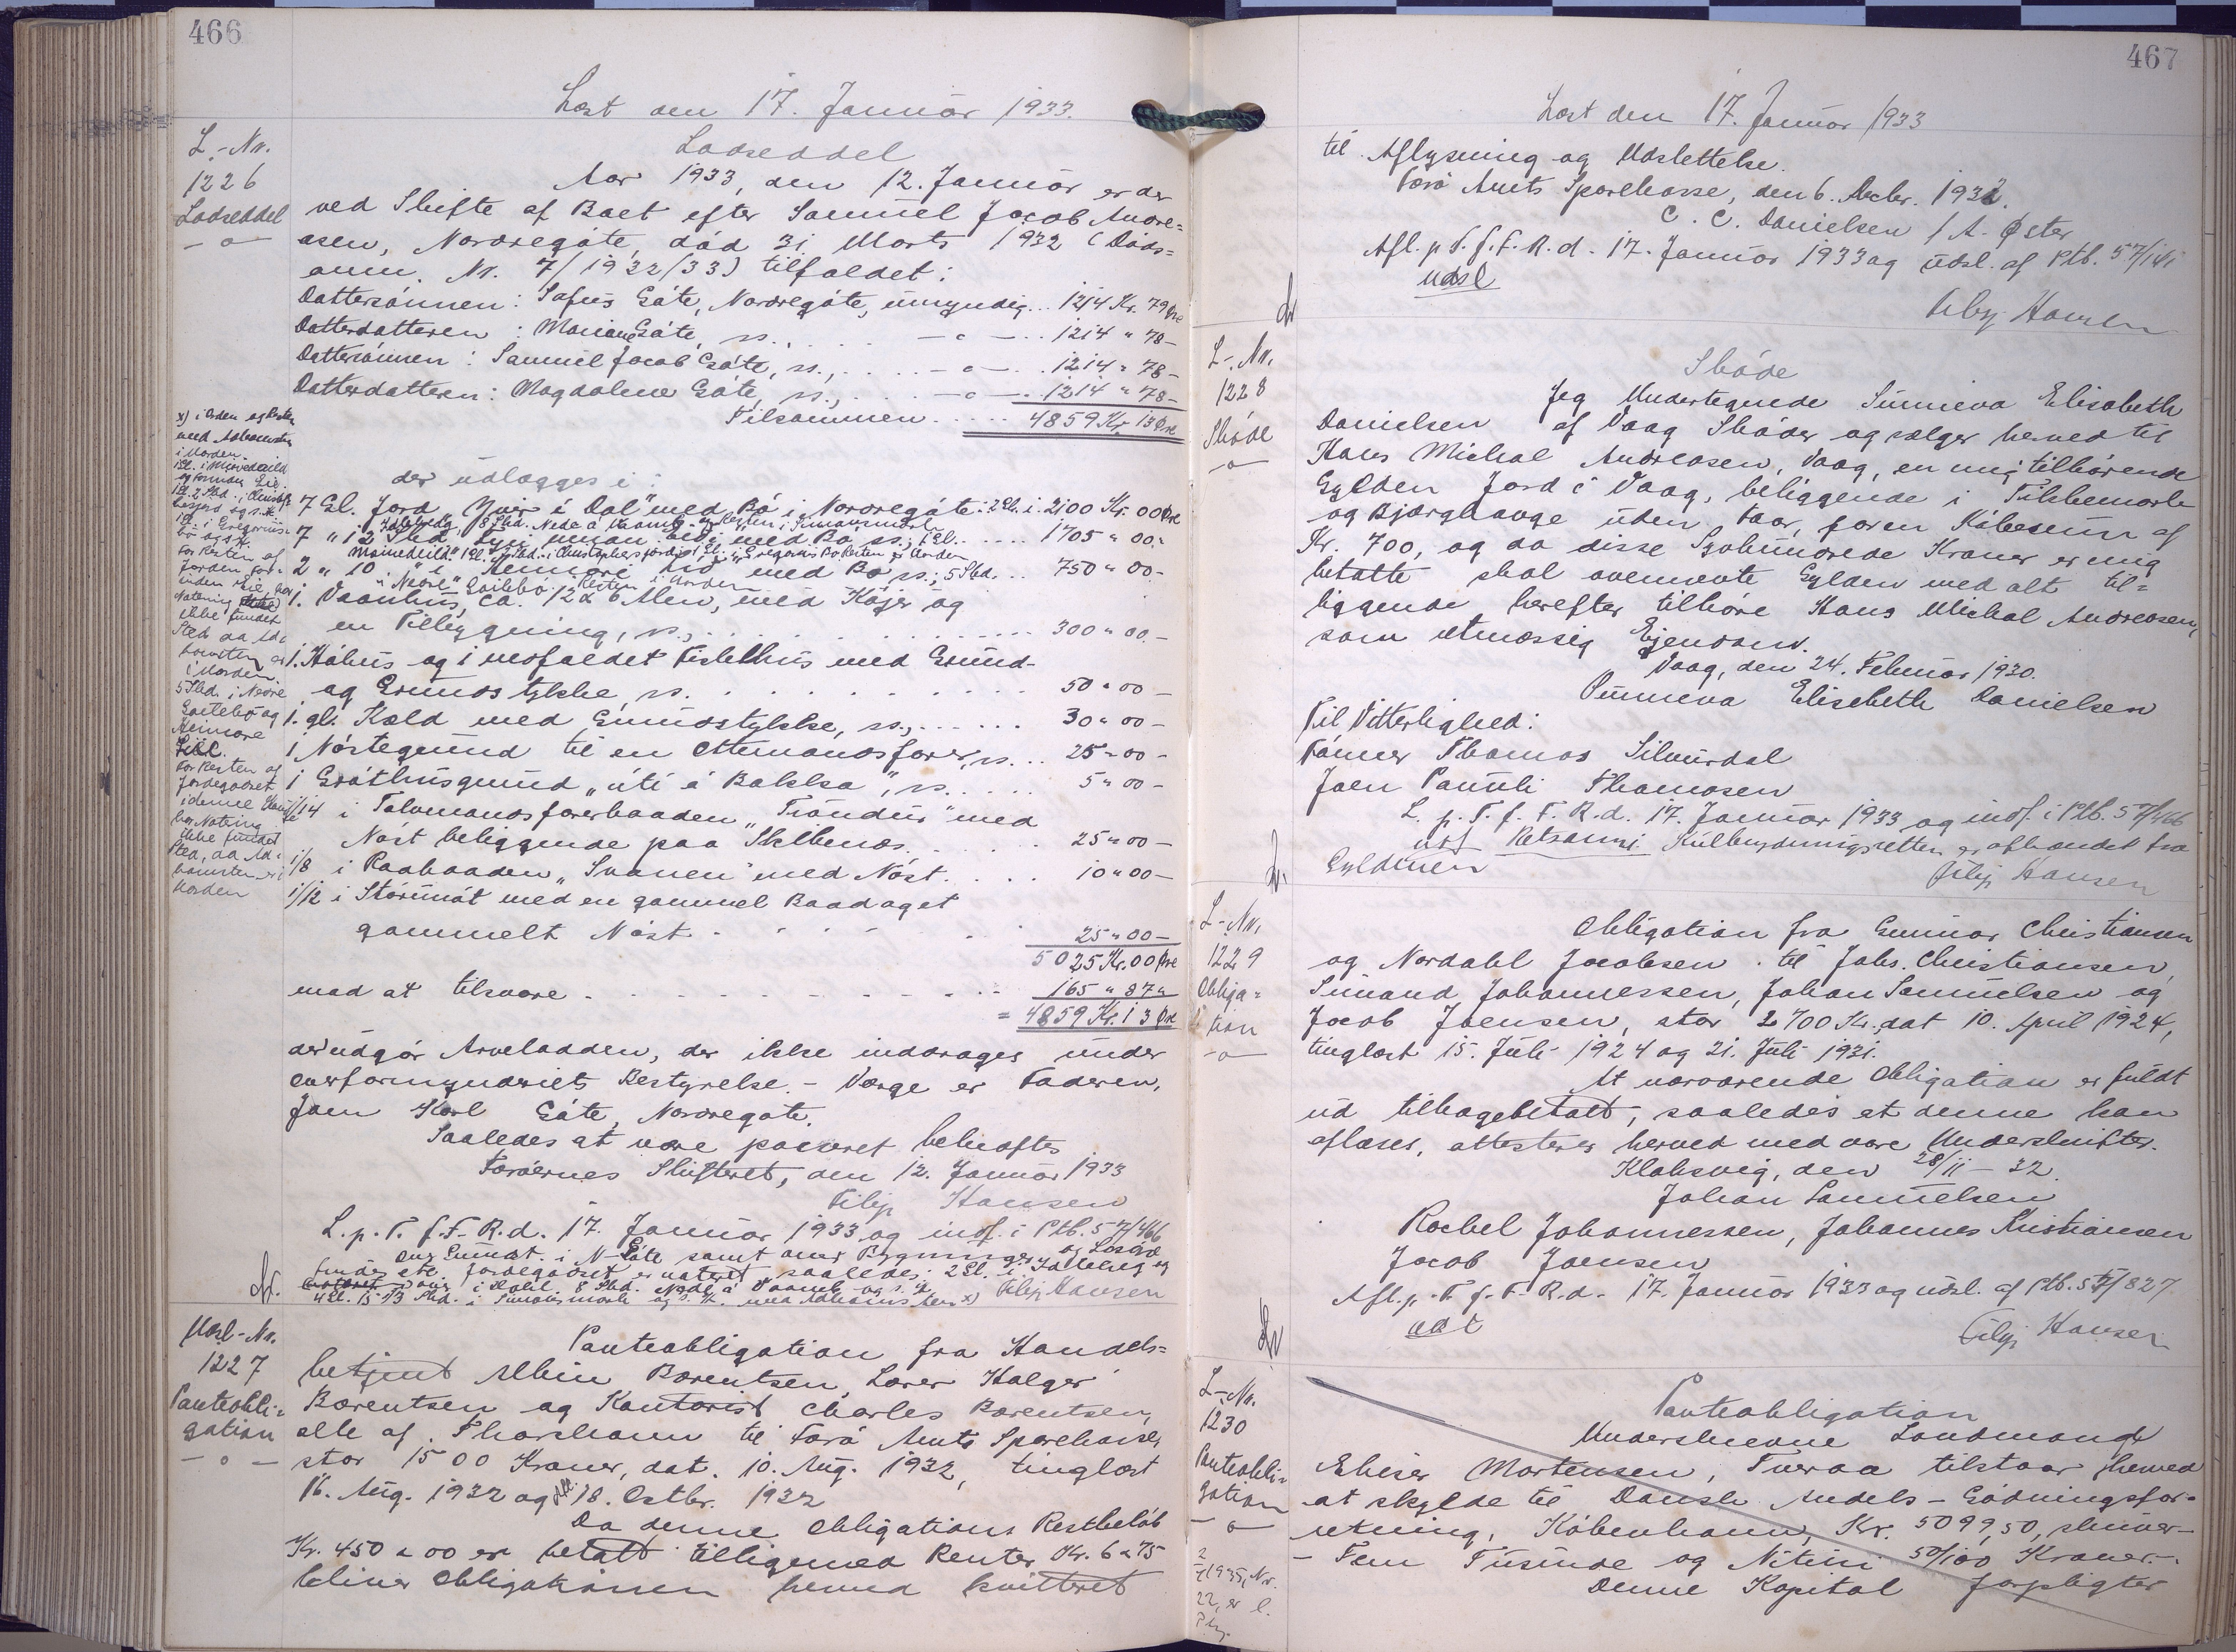 466
Læst den 17. Januar 1933.
L.-Nr.
1226
Lodseddel
-o-
Lodseddel
Aar 1933, den 12. Januar er der
ved Skifte af Boet efter Samuel Jacob Andre=
asen, Nordregøte, død 31 Marts 1932 (Døds=
anm. Nr. 7/1932/33) tilfaldet:
Dattersønnen: Sofus Gøte, Nordregøte, umyndig... 1214 Kr. 79 Øre
Datterdatteren: Mariane Gøte, ss., . . . -o- ... 1214 " 78 -
Dattersønnen: Samuel Jacob Gøte, ss., . . . -o- . . 1214 " 78 -
Datterdatteren: Magdalene Gøte, ss., . . . -o- . . 1214 " 78 -
Tilsammen . . . . . 4859 Kr. 13 Øre
der udlægges i:
7 Gl. Jord "Yvir í Dal" med Bø i Nordregøte: 2 Gl. i 2100 Kr. 00 Øre
7 " 12 Skd. med Bø, ss.; 1 Gl. . . . . . 1705 " 00 "
2 " 10 " i Heimari med Bø ss.; 5 Skd. . . 750 " 00 -
1. Vaanhus, ca. 12 x 6 Alen, med Køjer og
en Tilbygning, ss., . . . . . . . . 300 " 00. -
1. Høhus og 1 nedfaldet Fiskehus med Grund-
og Grundstykke, ss. . . . . . . . . . 50 " 00 -
1. gl. Kæld med Grundstykke, ss., . . . . . . 30 " 00 -
1 Nøstegrund til en Ottemandsfarer, ss. . . . 25 " 00 -
1 Grøthusgrund "úti á Bakka", ss. . . . . 5 " 00 -
1/14 i Tolvmandsfarerbaaden "Tróndur" med
Nøst beliggende paa Skibenæs. . . . . . 25 " 00 -
1/8 i Roabaaden "Svanen" med Nøst . . . . 10 " 00 -
1/12 i Stórunót med en gammel Baad og et
gammelt Nøst . . . . . . . 25 " 00 -
5025 Kr. 00 Øre
mod at tilsvare . . . . . . . . . . . 165 " 87 "
= 4859 Kr. 13 Øre
x) i Norden og Resten
med Adkomsten
i Norden.
For Resten af
Jorden for=
inden Eie, har
Notering
ikke fundet
Sted da Ad=
komsten er
i Norden.
5 Skd. i Nedre
Geilebø og
Heimare
For Resten af
Jordegodset
i denne
har Notering
ikke fundet
Sted, da Ad=
komsten er i
Norden
der udgør Arvelodden, der ikke inddrages under
Overformynderiets Bestyrelse. - Værge er Faderen,
Joen Karl Gøte, Nordregøte.
Saaledes at være passeret bekræftes
Færøernes Skifteret, den 12. Januar 1933
Filip Hansen
L. p. T. f. F. R. d. 17. Januar 1933 og indf. i Ptb. 57/466
Filip Hansen
Udsl-Nr.
1227
Panteobli=
gation
-o-
Panteobligation fra Handels=
betjent Albin Barentsen, Lærer Holger
Barentsen og Kontorist Charles Barentsen,
alle af Thorshavn til Færø Amts Sparekasse,
stor 1500 Kroner, dat. 10. Aug. 1932, tinglæst
16. Aug. 1932 og 18. Octbr. 1932
Da denne Obligations Restbeløb
Kr. 450 " 00 er betalt tilligemed Renter Kr. 6 " 75
bliver Obligationen herved kvitteret
467
Læst den 17. Januar 1933
til Aflysning og Udslettelse.
Færø Amts Sparekasse, den 6. Decbr. 1932.
C. C. Danielsen / A. Øster
Afl. p. T. f. F. R. d. 17. Januar 1933 og udsl. af Ptb. 57/141
udsl
Filip Hansen
L.-Nr.
1228
Skøde
-o-
Skøde
Jeg Undertegnede Sunneva Elisabeth
Danielsen af Vaag Skøder og sælger herved til
Hans Michal Andreasen, Vaag, en mig tilhørende
Gylden Jord i Vaag, beliggende i Tukkemørk
og Bjørghauge uden Haar, for en Købesum af
Kr. 700, og da disse Syvhundrede Kroner er mig
betalte skal ovennevnte Gylden med alt til=
liggende herefter tilhøre Hans Michal Andreasen,
som retmæssig Ejendom.
Vaag, den 24. Februar 1930.
Sunneva Elisebeth Danielsen
Til Vitterlighed:
Tánner Thomas Silvurdal
Joen Pauuli Thomasen
L. p. T. f. F. R. d. 17. Januar 1933 og indf. i Ptb. 57/466
Retsanm: Kulbrydningsretten er afhændet fra
Gyldenen
Filip Hansen
L.-Nr.
1229
Obliga=
tion
-o-
Obligation fra Gunnar Christiansen
og Nordahl Jacobsen til Johs. Christiansen,
Simand Johannessen, Johan Samuelsen og
Jacob Joensen, stor 2700 Kr. dat 10. April 1924,
tinglæst 15. Juli 1924 og 21. Juli 1931.
At nærværende Obligation er fuldt
ud tilbagebetalt, saaledes at denne kan
aflæses, attesteres herved med vore Underskrifter.
Klaksvig, den 28/11 - 32.
Johan Samuelsen
Rachel Johannessen, Johannes Kristiansen
Jacob Joensen
Afl. p. T. f. F. R. d. 17. Januar 1933 og udsl. af Ptb. 55/827
Filip Hansen
L.-Nr.
1230
Panteobli=
gation
-o-
Panteobligation
Underskrevne Landmand
Elieser Mortensen, Tveraa tilstaar herved
at skylde til Dansk Andels-Gødningsfor=
retning, København, Kr. 5099,50, skriver-
- Fem Tusinde og Nitini 50/100 Kroner.-
Denne Kapital forpligter